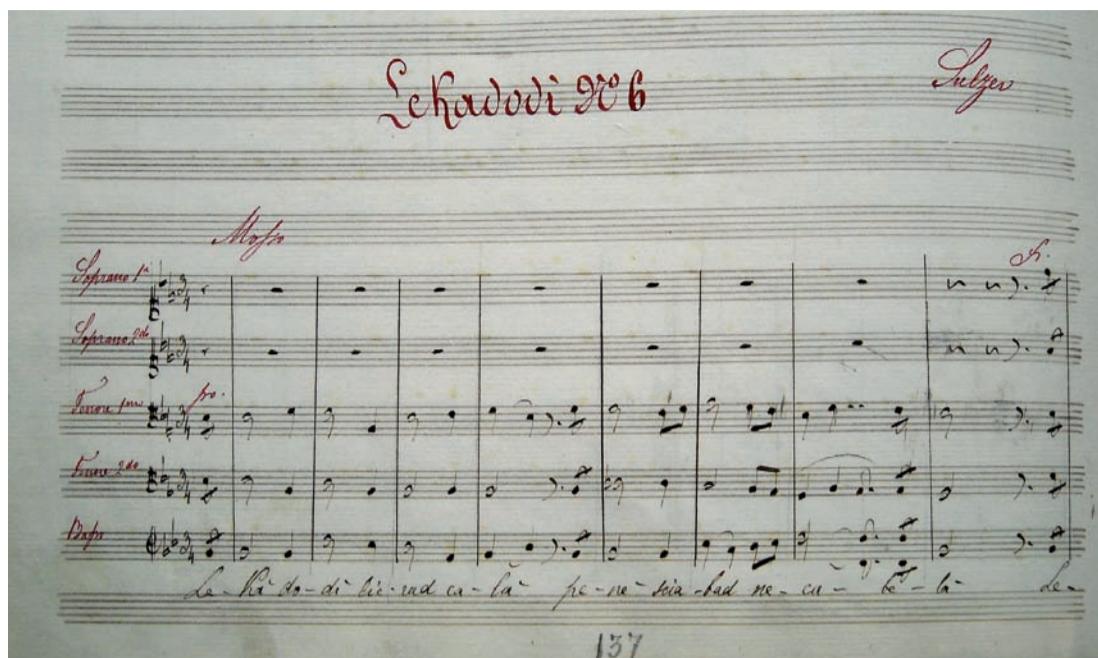 Lekadodi Nº 6
Sulzer
Mosso
Soprano 1º
Soprano 2do
Tenore 1mo
Tenore 2do
Basso
Le-kà do-di lic-rad ca-là pe-nè scia-bad ne-ca-be-là Le-
137